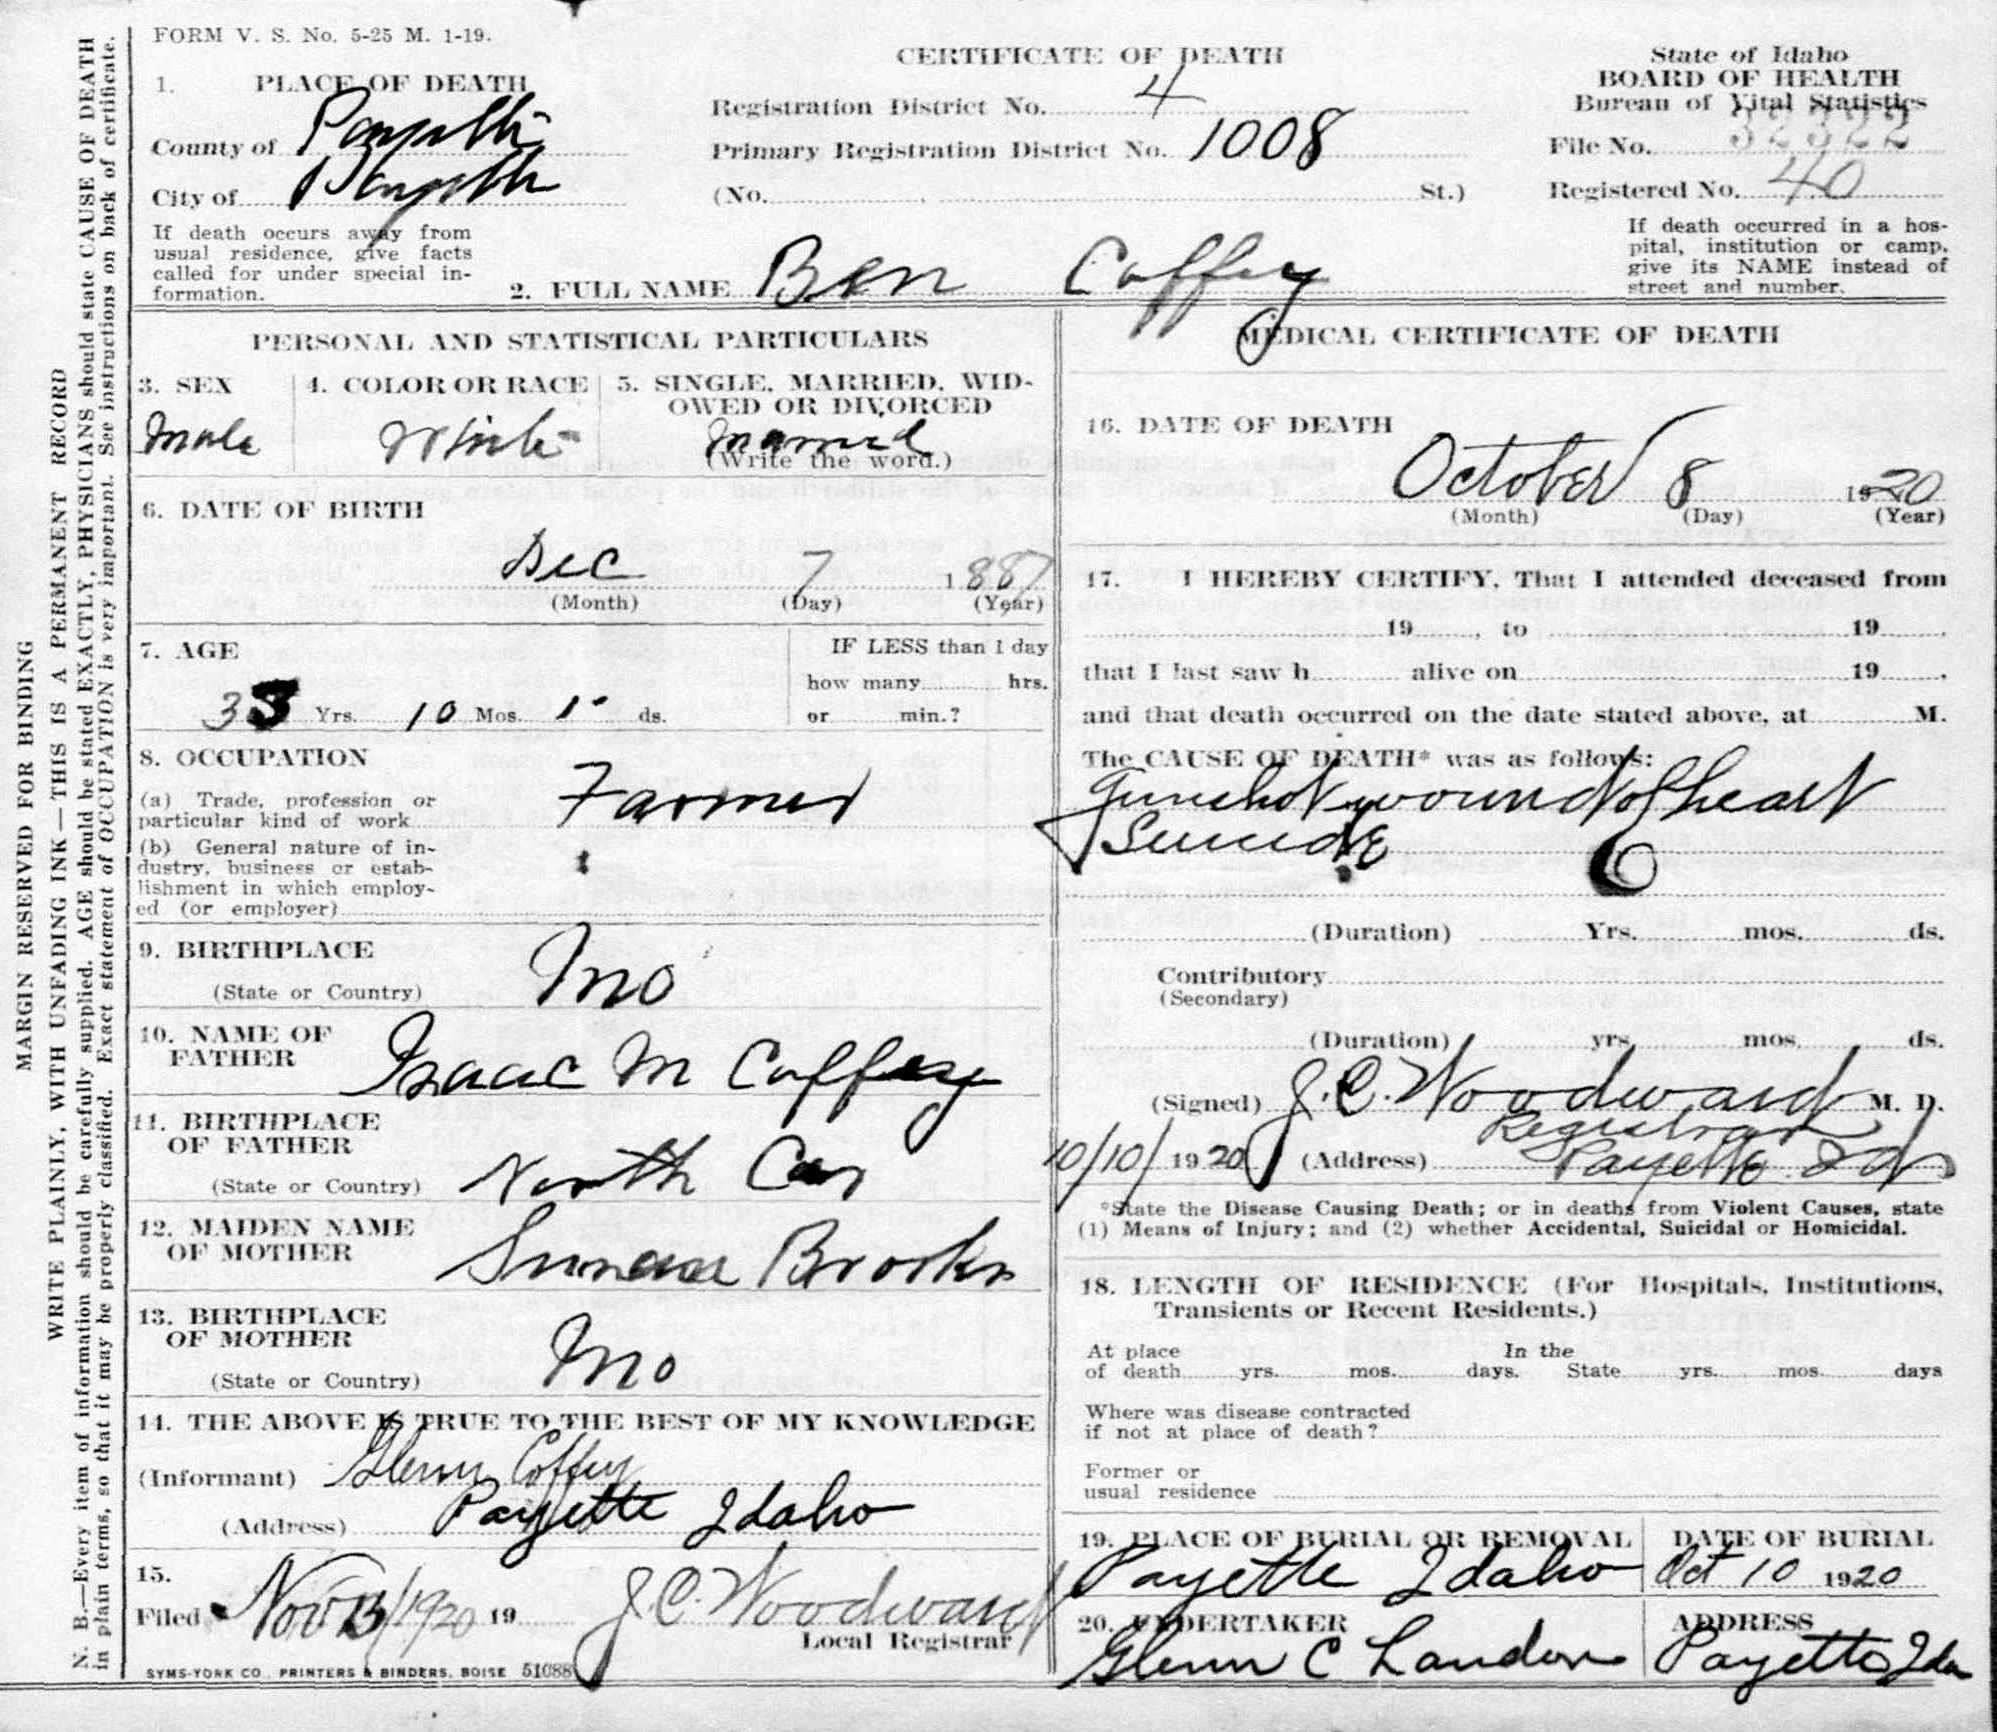 FORM V. S. No. 5-25 M. 1-19.
CERTIFICATE OF DEATH
State of Idaho
BOARD OF HEALTH
Bureau of Vital Statistics
File No. 32322
Registered No. 40
If death occurred in a hos-
pital, institution or camp,
give its NAME instead of
street and number.
1. PLACE OF DEATH
County of Payette
City of Payette
If death occurs away from
usual residence, give facts
called for under special in-
formation.
Registration District No. 4
Primary Registration District No. 1008
(No. St.)
2. FULL NAME Ben Coffey
PERSONAL AND STATISTICAL PARTICULARS
3. SEX
Male
4. COLOR OR RACE
White
5. SINGLE, MARRIED, WID-
OWED OR DIVORCED
Married
(Write the word.)
6. DATE OF BIRTH
Dec 7 1887
(Month) (Day) (Year)
7. AGE
33 Yrs. 10 Mos. 1 ds.
IF LESS than 1 day
how many hrs.
or min.?
8. OCCUPATION
(a) Trade, profession or
particular kind of work Farmer
(b) General nature of in-
dustry, business or estab-
lishment in which employ-
ed (or employer)
9. BIRTHPLACE
(State or Country) Mo
10. NAME OF
FATHER Isaac M Coffey
11. BIRTHPLACE
OF FATHER
(State or Country) North Car
12. MAIDEN NAME
OF MOTHER Brooks
13. BIRTHPLACE
OF MOTHER
(State or Country) Mo
14. THE ABOVE IS TRUE TO THE BEST OF MY KNOWLEDGE
(Informant) Glenn Coffey
(Address) Payette Idaho
15.
Filed Nov 13/1920 19 J.C. Woodward
Local Registrar
SYMS-YORK CO., PRINTERS & BINDERS, BOISE 51088
MEDICAL CERTIFICATE OF DEATH
16. DATE OF DEATH
October 8 1920
(Month) (Day) (Year)
17. I HEREBY CERTIFY, That I attended deceased from
19 , to 19 ,
that I last saw h alive on 19 ,
and that death occurred on the date stated above, at M.
The CAUSE OF DEATH* was as follows:
Gunshot wound of heart
Suicide
(Duration) Yrs. mos. ds.
Contributory
(Secondary)
(Duration) yrs. mos. ds.
(Signed) J.C. Woodward M. D.
Registrar
10/10/ 1920 (Address) Payette Ida
*State the Disease Causing Death; or in deaths from Violent Causes, state
(1) Means of Injury; and (2) whether Accidental, Suicidal or Homicidal.
18. LENGTH OF RESIDENCE (For Hospitals, Institutions,
Transients or Recent Residents.)
At place In the
of death yrs. mos. days. State yrs. mos. days
Where was disease contracted
if not at place of death?
Former or
usual residence
19. PLACE OF BURIAL OR REMOVAL
Payette Idaho
DATE OF BURIAL
Oct 10 1920
20. UNDERTAKER
Glenn C Landon
ADDRESS
Payette Ida
MARGIN RESERVED FOR BINDING
WRITE PLAINLY, WITH UNFADING INK—THIS IS A PERMANENT RECORD
N. B.—Every item of information should be carefully supplied. AGE should be stated EXACTLY, PHYSICIANS should state CAUSE OF DEATH
in plain terms, so that it may be properly classified. Exact statement of OCCUPATION is very important. See instructions on back of certificate.